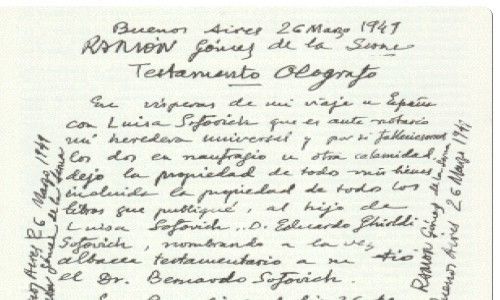 Buenos Aires 26 Marzo 1949
RAMÓN Gómez de la Serna
Testamento Olografo
En visperas de mi viaje a España
con Luisa Sofovich que es ante notario
mi heredera universal y por si fallecieramos
los dos en naufragio u otra calamidad,
dejo la propiedad de todos mis bienes
incluida la propiedad de todos los
libros que publiqué, al hijo de
Luisa Sofovich, D. Eduardo Ghioldi
Sofovich, nombrando a la vez
albacea testamentario a su tio
el Dr. Bernardo Sofovich.
Buenos Aires 26 Marzo 1949
Ramón Gómez de la Serna
RAMÓN Gómez de la Serna
Buenos Aires 26 Marzo 1949